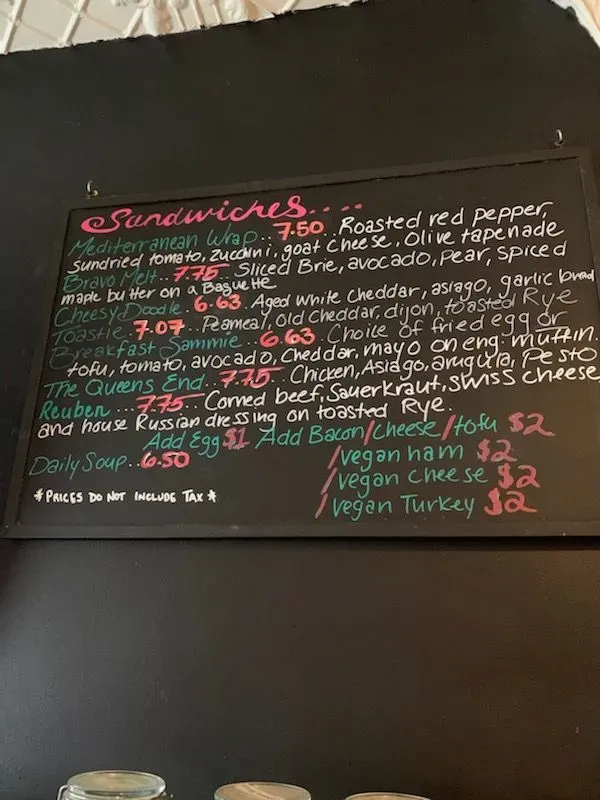 Sandwiches....
Mediterranean Wrap.. 7.50.. Roasted red pepper,
sundried tomato, zucchini, goat cheese, Olive tapenade
Bravo Melt.. 7.75.. Sliced Brie, avocado, pear, spiced
maple butter on a Baguette
Cheesy Doodle. 6.63. Aged white cheddar, asiago, garlic bread
Toastie. 7.07..Peameal, old cheddar, dijon, toasted Rye
Breakfast Sammie.. 6.63. Choice of fried egg or
tofu, tomato, avocado, cheddar, mayo on eng. muffin.
The Queens End.. 7.75.. Chicken, Asiago, arugula, Pesto
Reuben ... 7.75.. Corned beef, Sauerkraut, swiss cheese
and house Russian dressing on toasted Rye.
Add Egg $1 Add Bacon/cheese/tofu $2
/vegan ham $2
Daily Soup..6.50
/vegan cheese $2
*PRICES DO NOT INCLUDE TAX*
/vegan Turkey $2